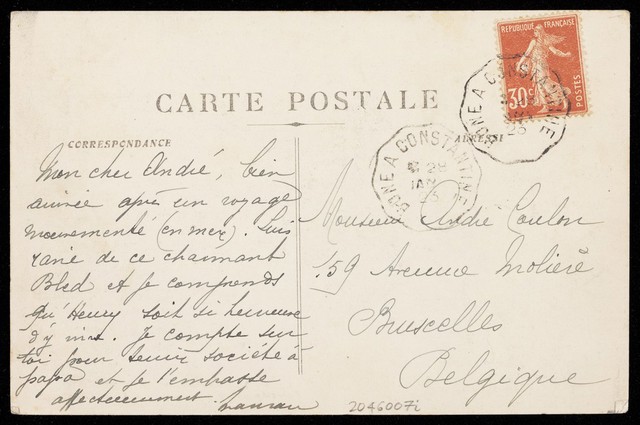 CARTE POSTALE
CORRESPONDANCE
ADRESSE
RÉPUBLIQUE FRANÇAISE
30c
POSTES
BÔNE A CONSTANTINE
BÔNE A CONSTANTINE
28
JAN
Mon cher André, bien
arrivée après un voyage
mouvementé (en mer). Suis
ravie de ce charmant
Bled et je comprends
qu'Henry soit si heureux
d'y vivre. Je compte sur
toi pour tenir société à
papa et je t'embrasse
affectueusement. Maman
Monsieur André Coulon
159 Avenue Molière
Bruxelles
Belgique
2046007i